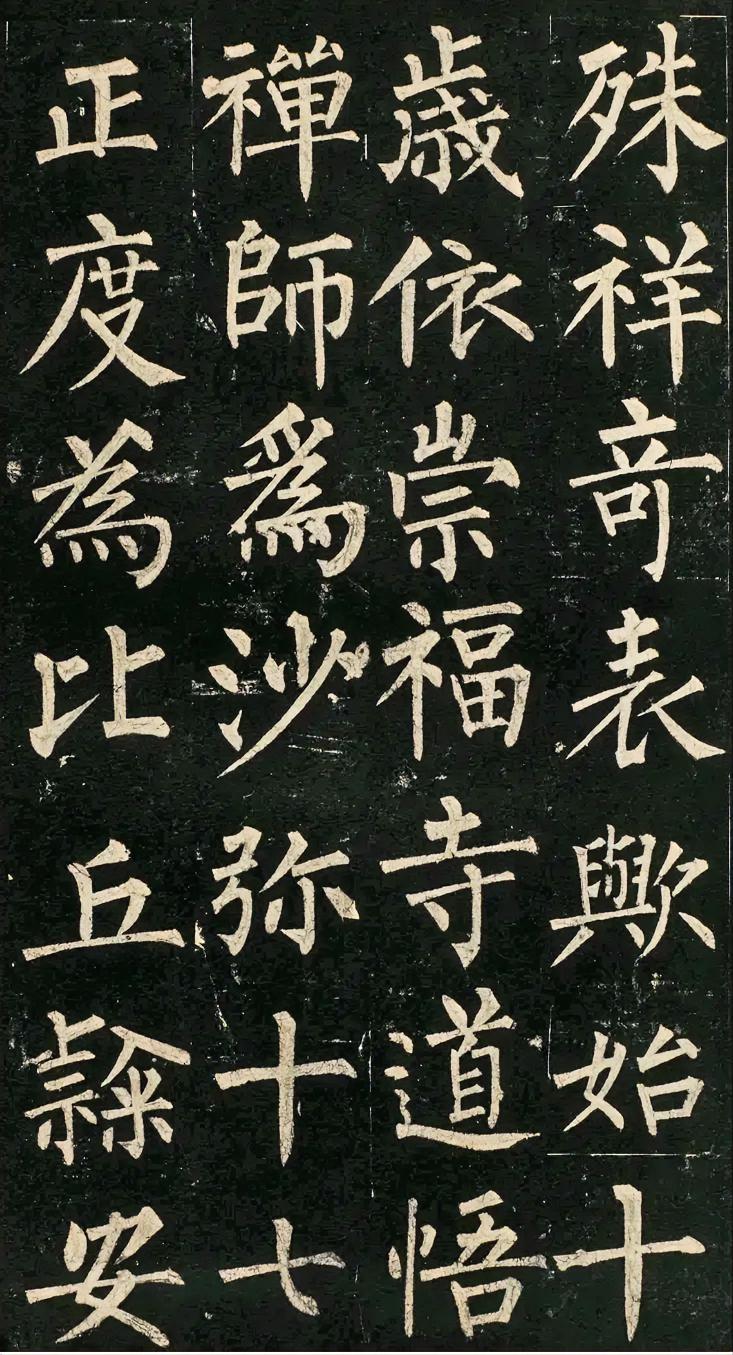 殊祥奇表歟始十
歳依崇福寺道悟
禪師爲沙弥十七
正度為比丘𨽻安